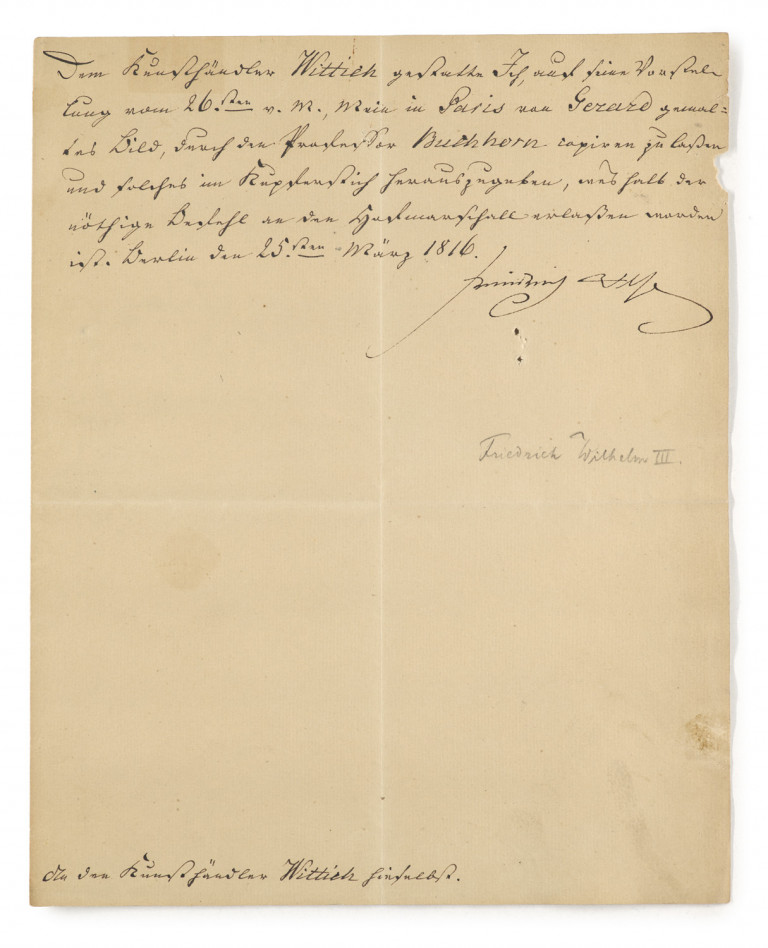 Dem Kunsthändler Wittich gestatte Ich, auf seine Vorstel-
lung vom 26.sten v. M., Mein in Paris von Gerard gemal=
tes Bild, durch den Professor Buchhorn copiren zu laßen
und solches im Kupferstich herauszugeben, weshalb der
nöthige Befehl an den Hofmarschall erlaßen worden
ist. Berlin den 25.sten März 1816.
Friedrich Wilh
Friedrich Wilhelm III.
An den Kunsthändler Wittich hieselbst.